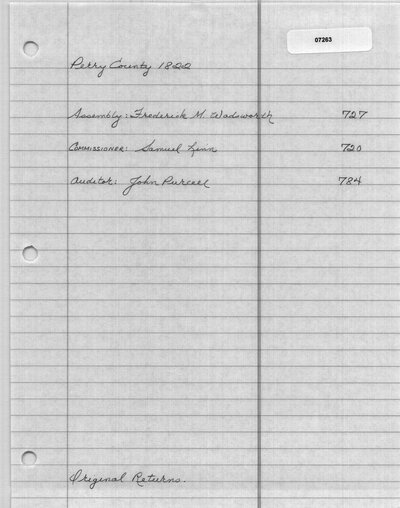 07263
Perry County 1822
Assembly: Frederick M. Wadsworth 727
Commissioner: Samuel Linn 720
Auditor: John Purcell 784
Original Returns.